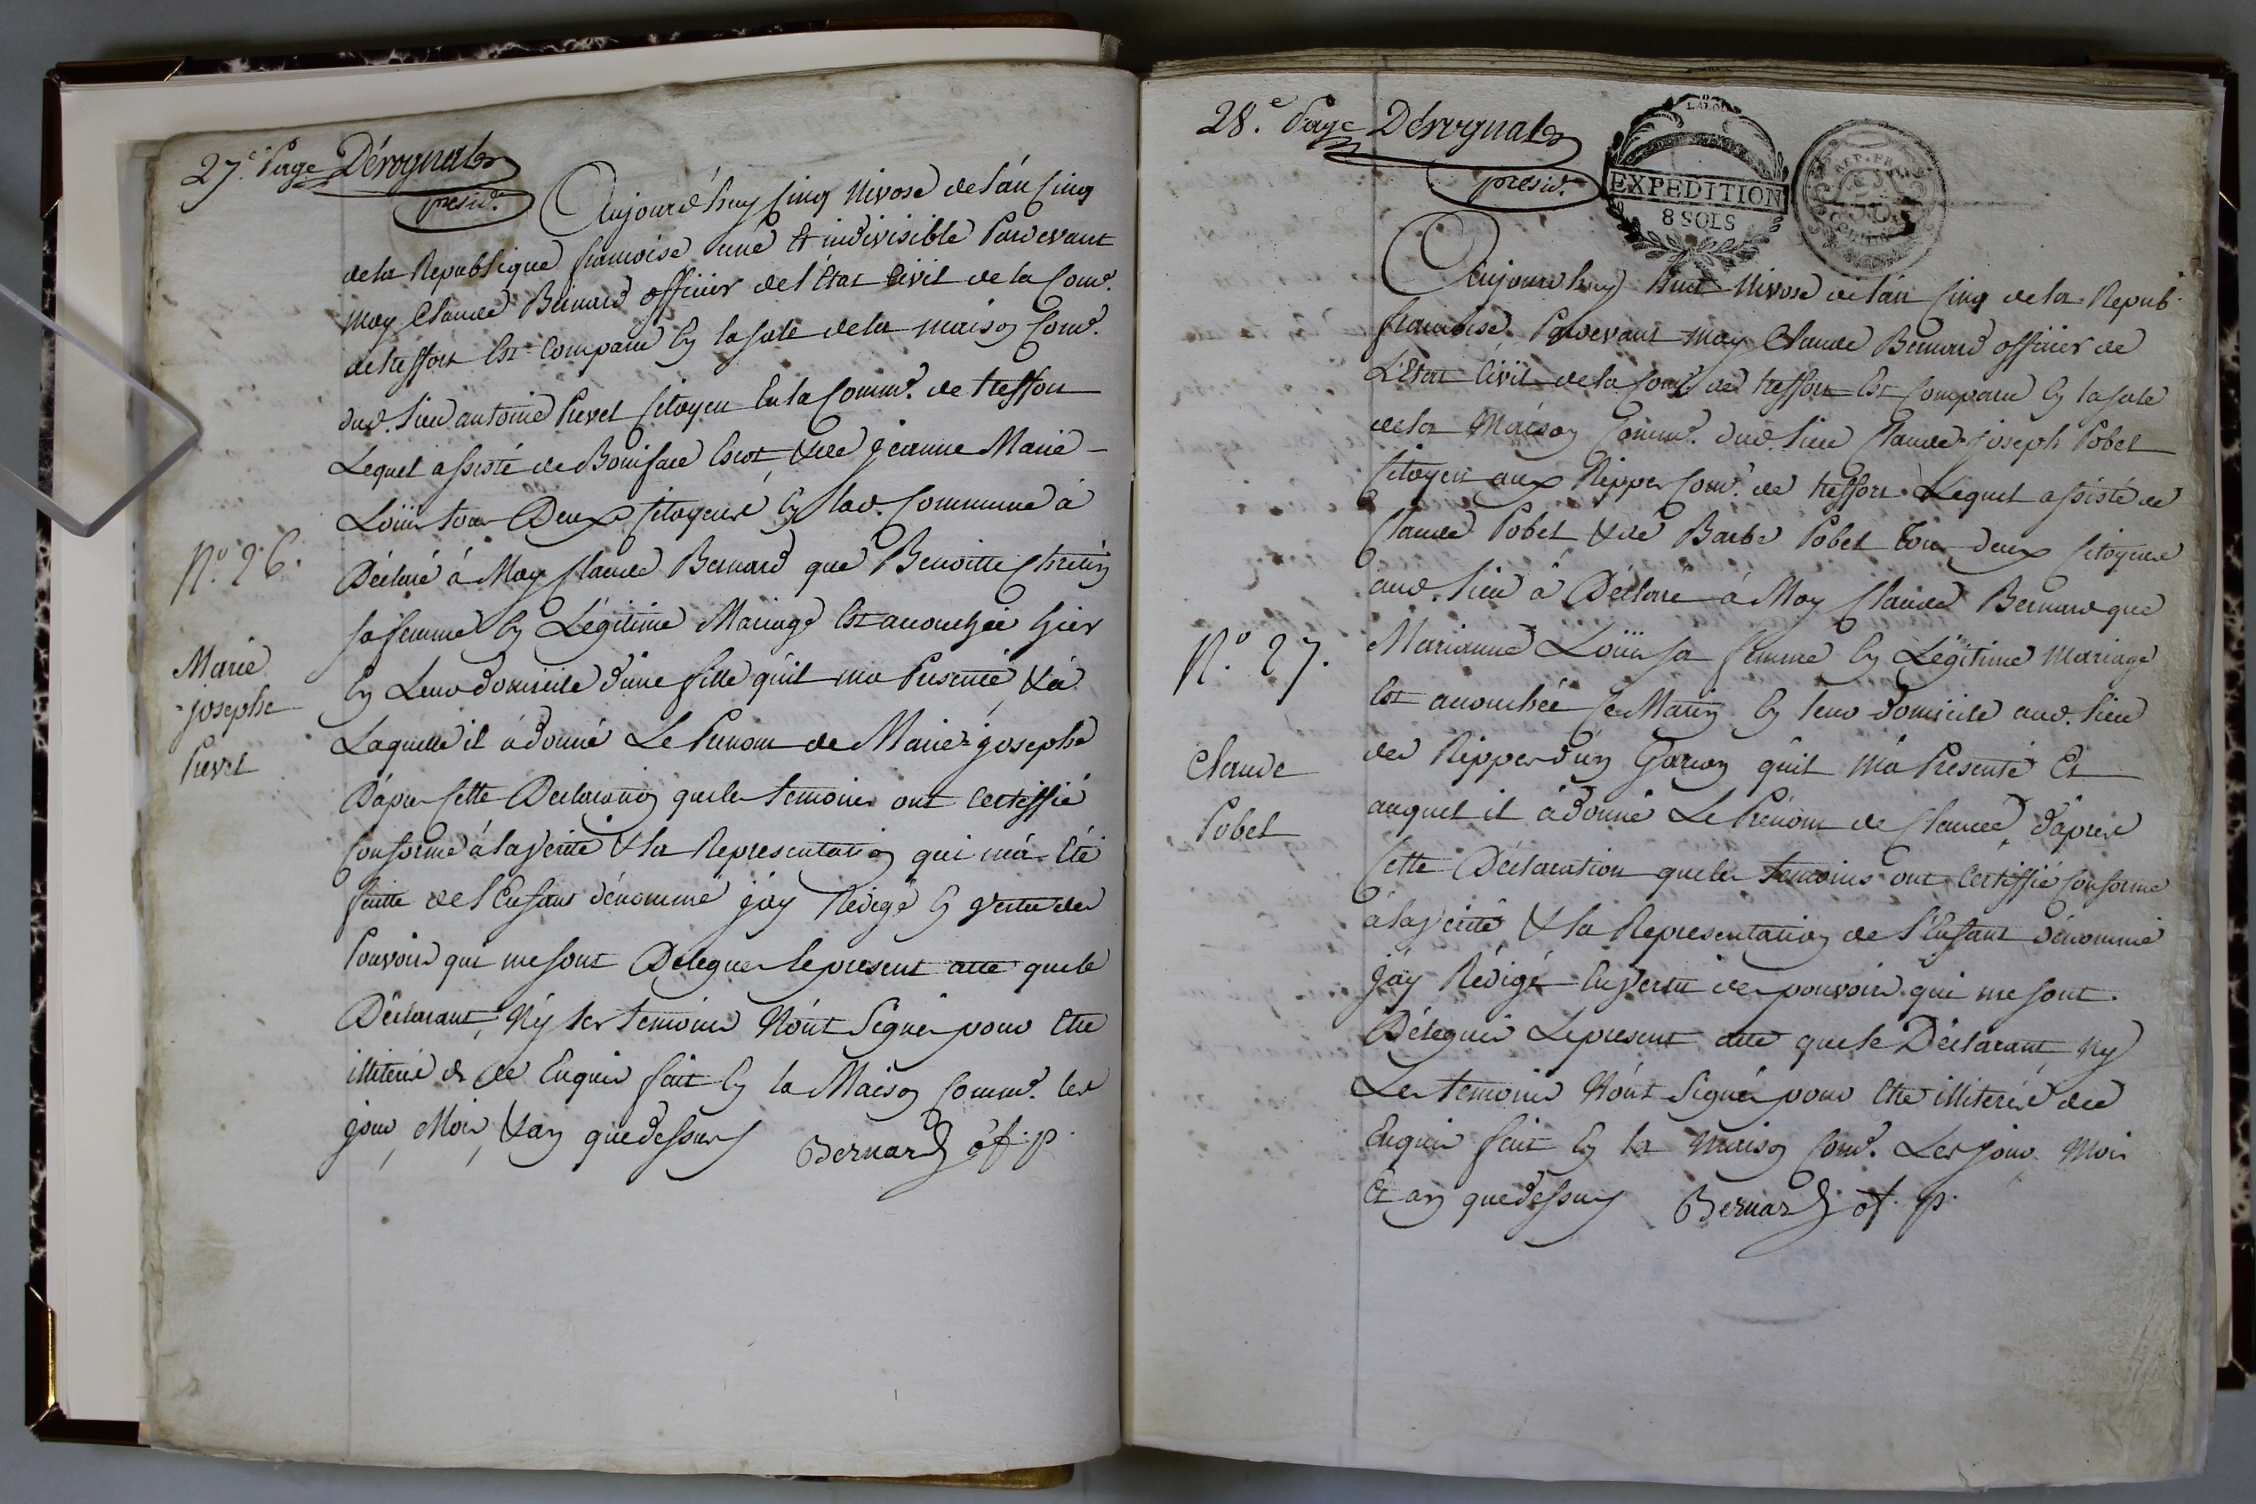 27.e Page Dérognat
presid.t
Aujourd'huy cinq Nivose de l'an cinq
de la Republique francoise une & indivisible Pardevant
moy Claude Bernard officier de l'État Civil de la Com.e
de treffort Est comparu en la sale de la maison Com.e
dud. lieu antoine Pievet citoyen En la Comm.e de treffort
Lequel assisté de & de jeanne Marie
Loüis tous Deux citoyens en lad. Commune à
Déclaré à Moy Claude Bernard que Benoitte Chretin
sa femme en Légitime Mariage Est accouchée hier
en Leur domicile d'une fille qu'il ma Presenté & à
Laquelle il à donné Le Prenom de Marie-josephe
D'après cette Declaration que les temoins ont certiffié
Conforme à la verité & la Representation qui m'à Eté
faitte de l'Enfant dénommé j'ay Redigé en vertu des
Pouvoirs qui me sont Delegués le present acte que le
Déclarant Ny les temoins N'ont Signés pour Etre
illiteré de ce Enquis fait en la Maison Comm.e les
jour, Mois, & an que dessus Bernard of. p.
N.o 26.
Marie
josephe
Pievet
28.e Page Dérognat
presid.t
EXPEDITION
8 SOLS
REP. FRA.
50
Aujourd'huy huit Nivose de l'an cinq de la Repub.
francoise, Pardevant moy Claude Bernard officier de
L'Etat Civil de la Com.e de treffort Est Comparu en la sale
de la Maison Comm.e dud. lieu Claude-joseph Pobel
citoyen aux Rippes Com.e de treffort Lequel assisté de
Claude Pobel & de Barbe Pobel tous deux citoyens
aud. lieu à Déclaré à Moy Claude Bernard que
Marianne Loüis sa femme en Légitime mariage
Est accouchée ce Matin en leur domicile aud. lieu
des Rippes d'un Garcon qu'il m'à Presenté Et
auquel il à donné Le Prénom de Claude, d'après
cette Déclaration que les temoins ont certiffié conforme
à la verité & la Representation de l'Enfant dénommé
j'ay Rédigé En vertu des pouvoirs qui me sont
Délegués Le present acte que le Déclarant Ny
Les temoins N'ont Signés pour Etre illiterés de ce
Enquis fait en la maison Com.e Les jour, Mois
Et an que dessus Bernard of. p.
N.o 27.
Claude
Pobel